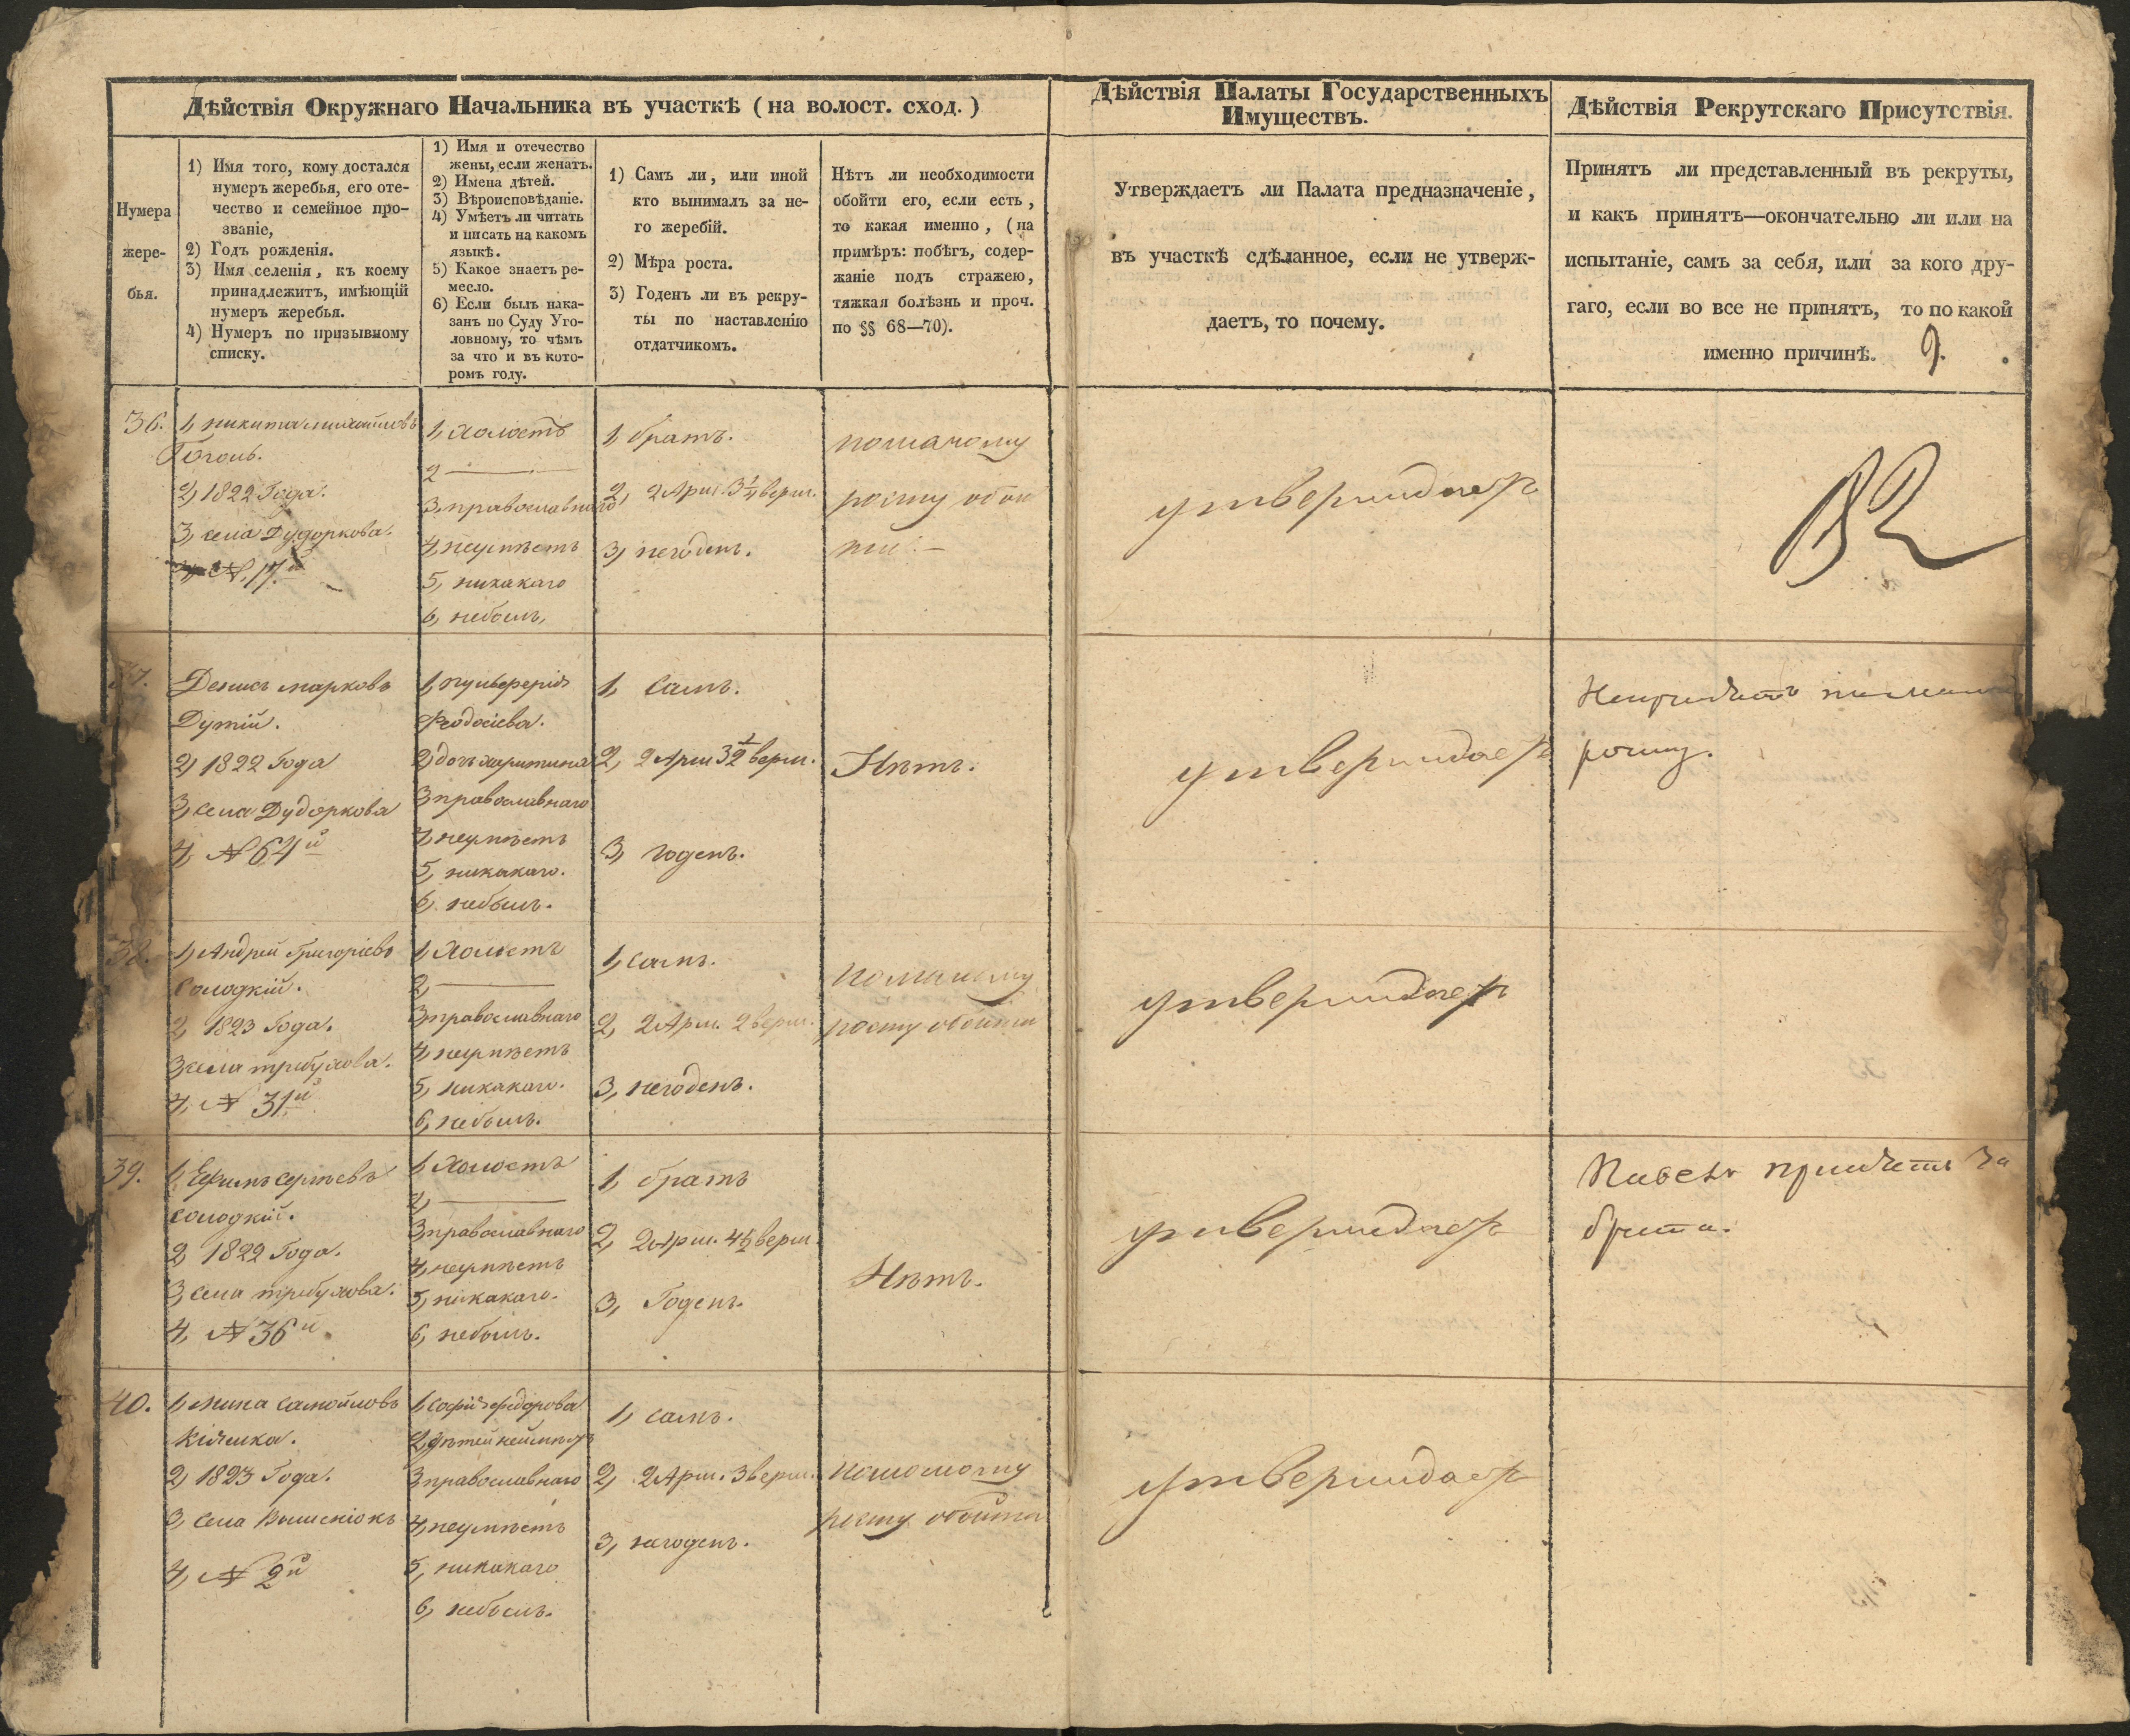 Дѣйствія Окружнаго Начальника въ участкѣ (на волост. сход.)
Дѣйствія Палаты Государственныхъ
Имуществъ.
Дѣйствія Рекрутскаго Присутствія.
Нумера
жере-
бья.
1) Имя того, кому достался
нумеръ жеребья, его оте-
чество и семейное про-
званіе,
2) Годъ рожденія.
3) Имя селенія, къ коему
принадлежитъ, имѣющій
нумеръ жеребья.
4) Нумеръ по призывному
списку.
1) Имя и отечество
жены, если женатъ.
2) Имена дѣтей.
3) Вѣроисповѣданіе.
4) Умѣетъ ли читать
и писать на какомъ
языкѣ.
5) Какое знаетъ ре-
месло.
6) Если былъ нака-
занъ по Суду Уго-
ловному, то чѣмъ
за что и въ кото-
ромъ году.
1) Самъ ли, или иной
кто вынималъ за не-
го жеребій.
2) Мѣра роста.
3) Годенъ ли въ рекру-
ты по наставленію
отдатчикомъ.
Нѣтъ ли необходимости
обойти его, если есть,
то какая именно, (на
примѣръ: побѣгъ, содер-
жаніе подъ стражею,
тяжкая болѣзнь и проч.
по §§ 68—70).
Утверждаетъ ли Палата предназначеніе,
въ участкѣ сдѣланное, если не утверж-
даетъ, то почему.
Принятъ ли представленный въ рекруты,
и какъ принятъ—окончательно ли или на
испытаніе, самъ за себя, или за кого дру-
гаго, если во все не принятъ, то по какой
именно причинѣ.
9.
36.
1, никита михайловъ
Гоголь.
2, 1822 Года.
3, села Дудоркова.
4, N 17й
1, Холостъ
2 —
3, православнаго
4, неумѣетъ
5, никакаго
6, небылъ,
1, братъ.
2, 2 Арш. 3 1/4 верш.
3, негоденъ.
помалому
росту обой
ти. —
утверждаетъ
37.
Денисъ марковъ
Дутій.
2, 1822 Года
3, села Дудоркова
4, N 64й
1, пульферія
Феодосіева.
2, дочь харитина
3, православнаго
4, неумѣетъ
5, никакаго.
6, небылъ.
1, Самъ.
2, 2 Арш 3 1/2 верш.
3, годенъ.
Нѣтъ.
утверждаетъ
Непринятъ по малому
росту.
38.
1, Андрей Григоріевъ
Солодкій.
2, 1823 Года.
3, села трибухова.
4, N 31й
1, Холостъ
2, —
3, православнаго
4, неумѣетъ
5, никакаго.
6, небылъ.
1, самъ.
2, 2 Арш. 2 верш.
3, негоденъ.
помалому
росту обойти
утверждаетъ
39.
1, Ефимъ Сергѣевъ
солодкій.
2, 1822 Года.
3, села трибухова.
4, N 36й
1, Холостъ
2, —
3, православнаго
4, неумѣетъ
5, никакаго.
6, небылъ.
1, братъ
2, 2 Арш. 4 1/2 верш
3, Годенъ.
Нѣтъ.
утверждаетъ
Павелъ принятъ за
брата.
40.
1, мина самойловъ
Кіяшка.
2, 1823 Года.
3, села
4, N 2й
1, Софія федорова
2, дѣтей неимѣетъ
3, православнаго
4, неумѣетъ
5, никакаго
6, небылъ.
1, самъ.
2, 2 Арш. 3 верш.
3, негоденъ.
помалому
росту обойти
утверждаетъ